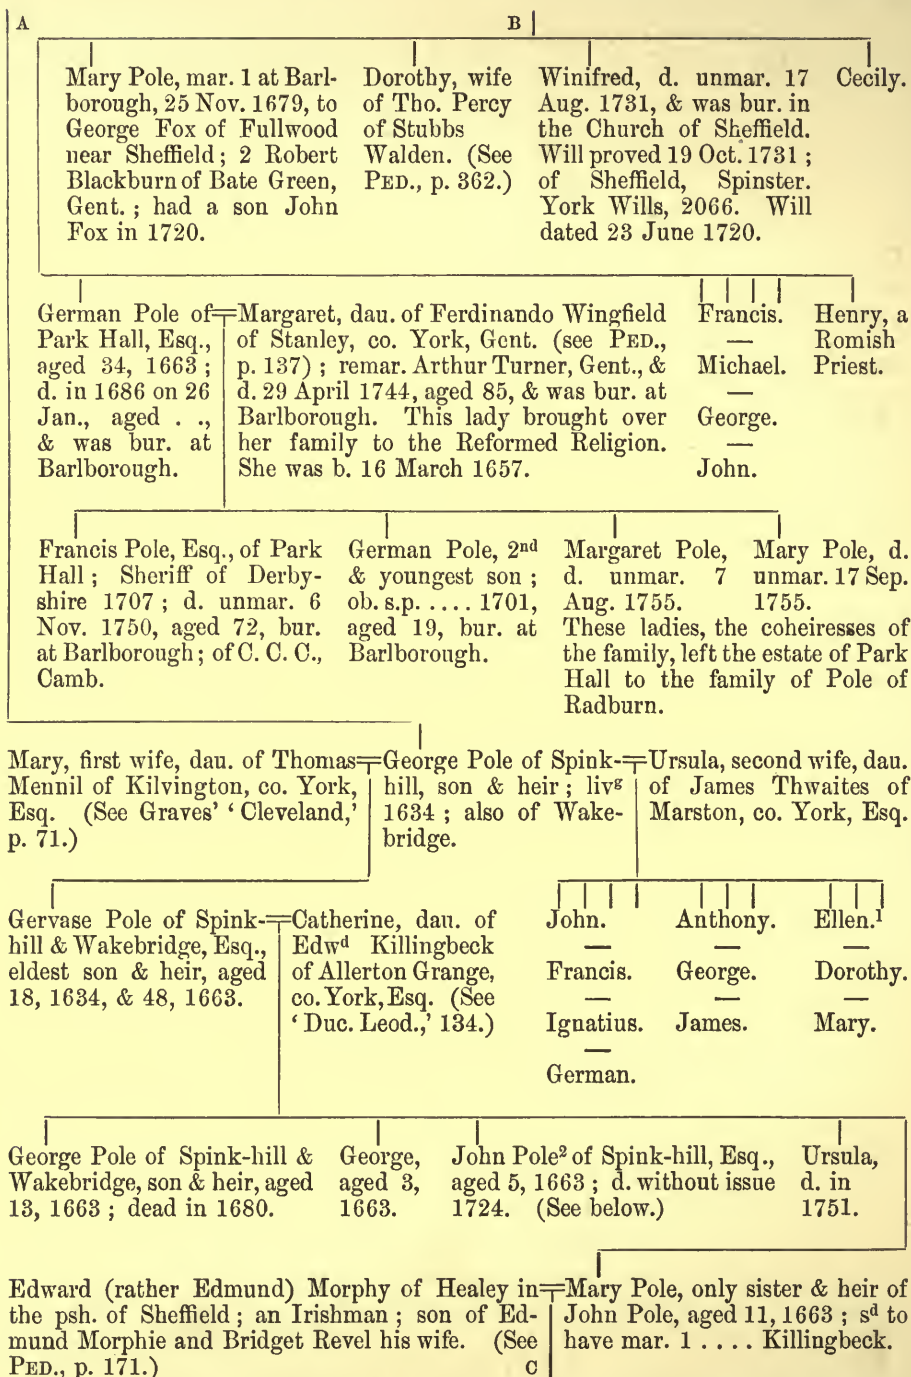 A
B
Mary Pole, mar. 1 at Barl-
borough, 25 Nov. 1679, to
George Fox of Fullwood
near Sheffield; 2 Robert
Blackburn of Bate Green,
Gent.; had a son John
Fox in 1720.
Dorothy, wife
of Tho. Percy
of Stubbs
Walden. (See
PED., p. 362.)
Winifred, d. unmar. 17
Aug. 1731, & was bur. in
the Church of Sheffield.
Will proved 19 Oct. 1731;
of Sheffield, Spinster.
York Wills, 2066. Will
dated 23 June 1720.
Cecily.
German Pole of
Park Hall, Esq.,
aged 34, 1663;
d. in 1686 on 26
Jan., aged . .,
& was bur. at
Barlborough.
Margaret, dau. of Ferdinando Wingfield
of Stanley, co. York, Gent. (see PED.,
p. 137); remar. Arthur Turner, Gent., &
d. 29 April 1744, aged 85, & was bur. at
Barlborough. This lady brought over
her family to the Reformed Religion.
She was b. 16 March 1657.
Francis.
—
Michael.
—
George.
—
John.
Henry, a
Romish
Priest.
Francis Pole, Esq., of Park
Hall; Sheriff of Derby-
shire 1707; d. unmar. 6
Nov. 1750, aged 72, bur.
at Barlborough; of C. C. C.,
Camb.
German Pole, 2nd
& youngest son;
ob. s.p. .... 1701,
aged 19, bur. at
Barlborough.
Margaret Pole,
d. unmar. 7
Aug. 1755.
Mary Pole, d.
unmar. 17 Sep.
1755.
These ladies, the coheiresses of
the family, left the estate of Park
Hall to the family of Pole of
Radburn.
Mary, first wife, dau. of Thomas
Mennil of Kilvington, co. York,
Esq. (See Graves' 'Cleveland,'
p. 71.)
George Pole of Spink-
hill, son & heir; livg
1634; also of Wake-
bridge.
Ursula, second wife, dau.
of James Thwaites of
Marston, co. York, Esq.
Gervase Pole of Spink-
hill & Wakebridge, Esq.,
eldest son & heir, aged
18, 1634, & 48, 1663.
Catherine, dau. of
Edwd Killingbeck
of Allerton Grange,
co. York, Esq. (See
'Duc. Leod.,' 134.)
John.
—
Francis.
—
Ignatius.
—
German.
Anthony.
—
George.
—
James.
Ellen.1
—
Dorothy.
—
Mary.
George Pole of Spink-hill &
Wakebridge, son & heir, aged
13, 1663; dead in 1680.
George,
aged 3,
1663.
John Pole2 of Spink-hill, Esq.,
aged 5, 1663; d. without issue
1724. (See below.)
Ursula,
d. in
1751.
Edward (rather Edmund) Morphy of Healey in
the psh. of Sheffield; an Irishman; son of Ed-
mund Morphie and Bridget Revel his wife. (See
PED., p. 171.)
C
Mary Pole, only sister & heir of
John Pole, aged 11, 1663; sd to
have mar. 1 .... Killingbeck.